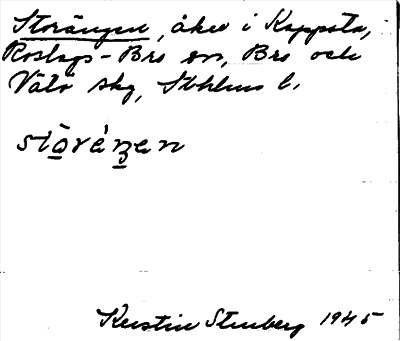 Storängen, åker i Kappsta,
Roslags-Bro sn, Bro och
Vätö skg, Sthlms l.
stōrèŋen
Kerstin Stenberg 1945